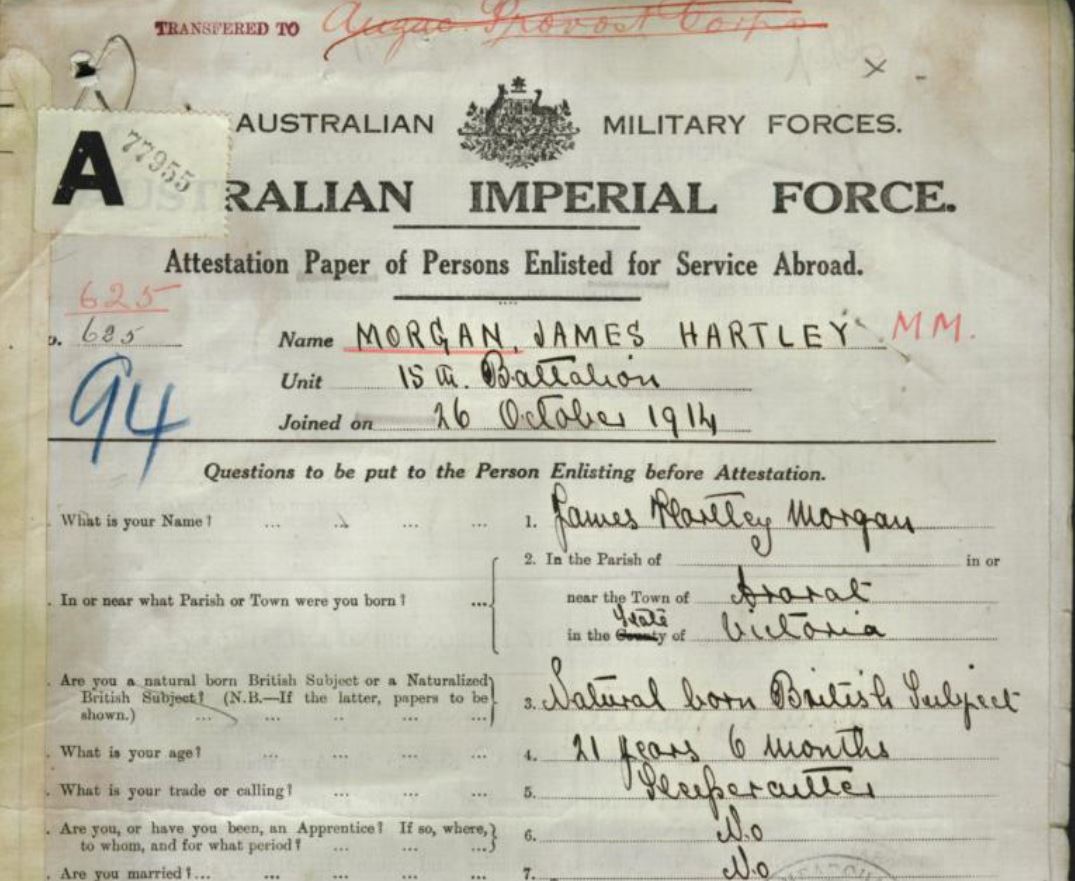 TRANSFERED TO Anzac Provost Corps
AUSTRALIAN MILITARY FORCES.
A 77955
AUSTRALIAN IMPERIAL FORCE.
Attestation Paper of Persons Enlisted for Service Abroad.
625
o. 625 Name MORGAN, JAMES HARTLEY MM.
Unit 15th. Battalion
94
Joined on 26 October 1914
Questions to be put to the Person Enlisting before Attestation.
. What is your Name? ... ... ... ... 1. James Hartley Morgan
2. In the Parish of in or
. In or near what Parish or Town were you born? ... near the Town of Ararat
State
in the County of Victoria
. Are you a natural born British Subject or a Naturalized
British Subject? (N.B.—If the latter, papers to be 3. Natural born British Subject
shown.) ... ... .. ... ...
. What is your age? ... ... ... ... 4. 21 years 6 months
. What is your trade or calling? ... ... ... 5. Sleepercutter
. Are you, or have you been, an Apprentice? If so, where, 6. No
to whom, and for what period? ... ... ...
. Are you married?... ... ... ... ... 7. No